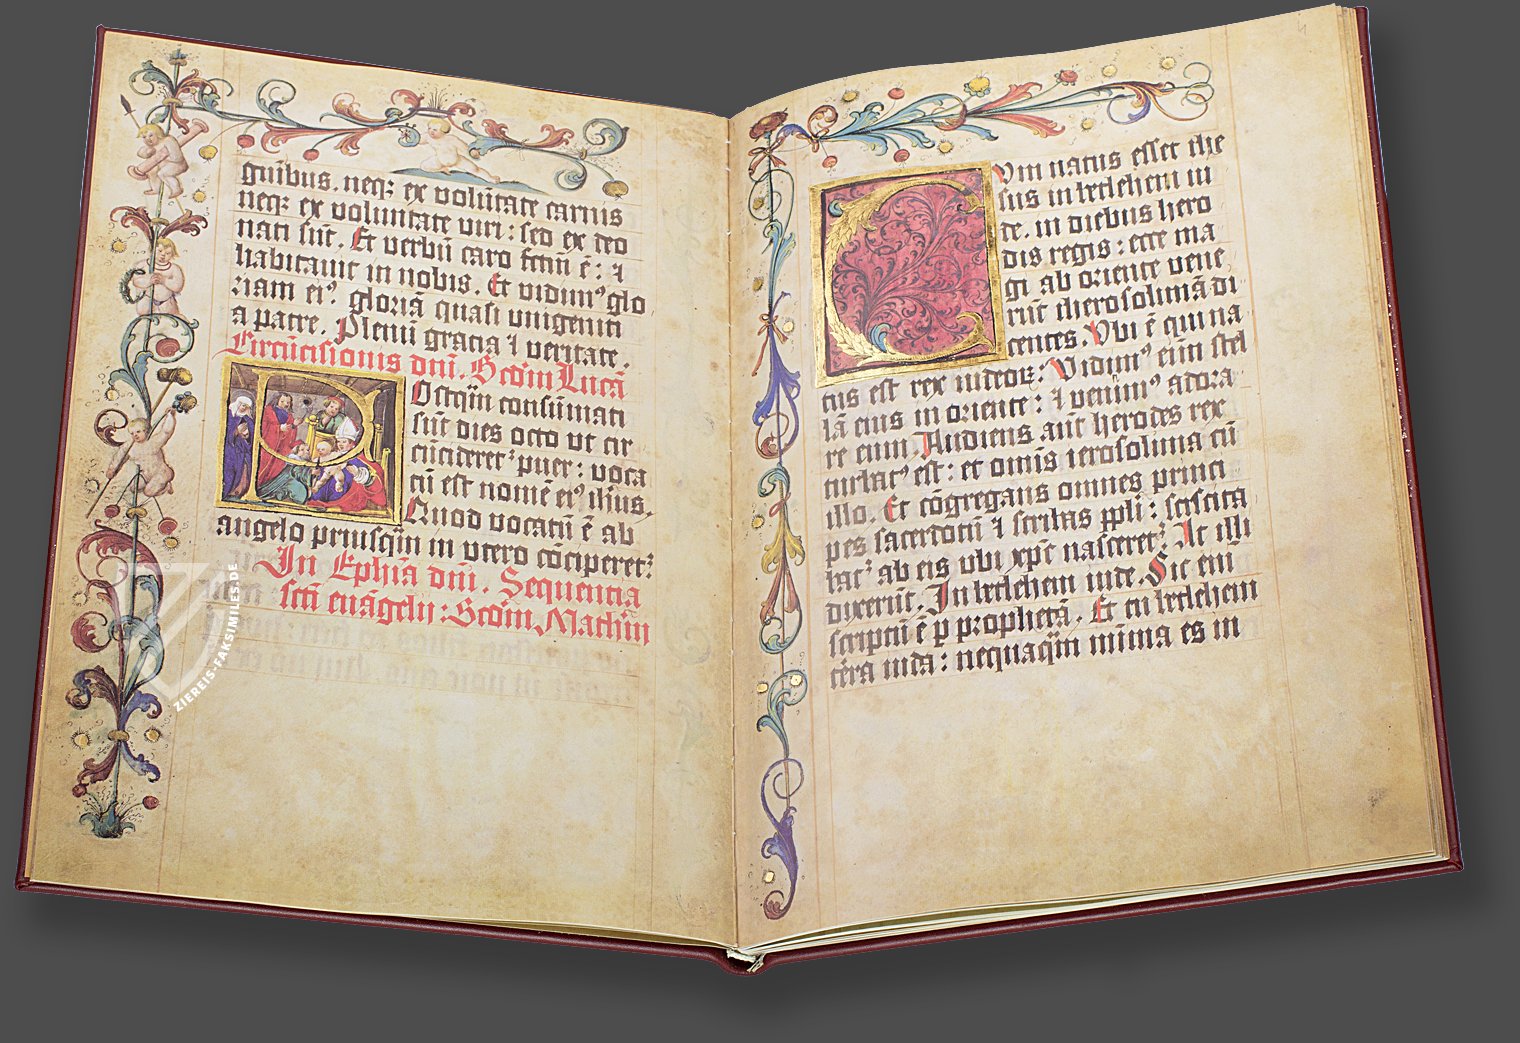 guībus. neq; ex volūtate carnis
neq; ex voluntate viri: sed ex deo
nati sūt. Et verbū caro fctm̄ ē: ⁊
habitauit in nobis. Et vidimꝰ glo
riam eiꝰ. gloriā quasi vnigeniti
a patre. Plenū gracia ⁊ veritate.
Circūcisionis dnī. Scd̄m Lucā
Ostqꝫ̄ consūmati
sūt dies octo vt cir
cūcideretᷣ puer: voca
tū est nomē eiꝰ ih̄us.
Quod vocatū ē ab
angelo priusqꝫ̄ in vtero cōciperetᷣ
In Eph̄ia dnī. Sequentia
scti euāgelii: Scd̄m Math̄m
Vm natus esset ihe
sus in betlehem iu
de. in diebus hero
dis regis: ecce ma
gi ab oriente vene
rūt iherosolimā di
centes. Vbi ē qui na
tus est rex iudeoꝝ: Vidimꝰ eīm stel
lā eius in oriente: ⁊ venimꝰ adora
re eum. Audiens aūt herodes rex
turbatꝰ est: et omīs ierosolima cū
illo. Et cōgregans omnes princi
pes sacerdotū ⁊ scribas ppl̄i: sciscita
batᷣ ab eis vbi xp̄c nasceretᷣ At illi
dixerūt. In betlehem iude. Sic enī
scriptū ē ꝑ prophetā. Et tu betlehem
terra iuda: nequaqꝫ̄ minima es in
ZIEREIS-FAKSIMILES.DE